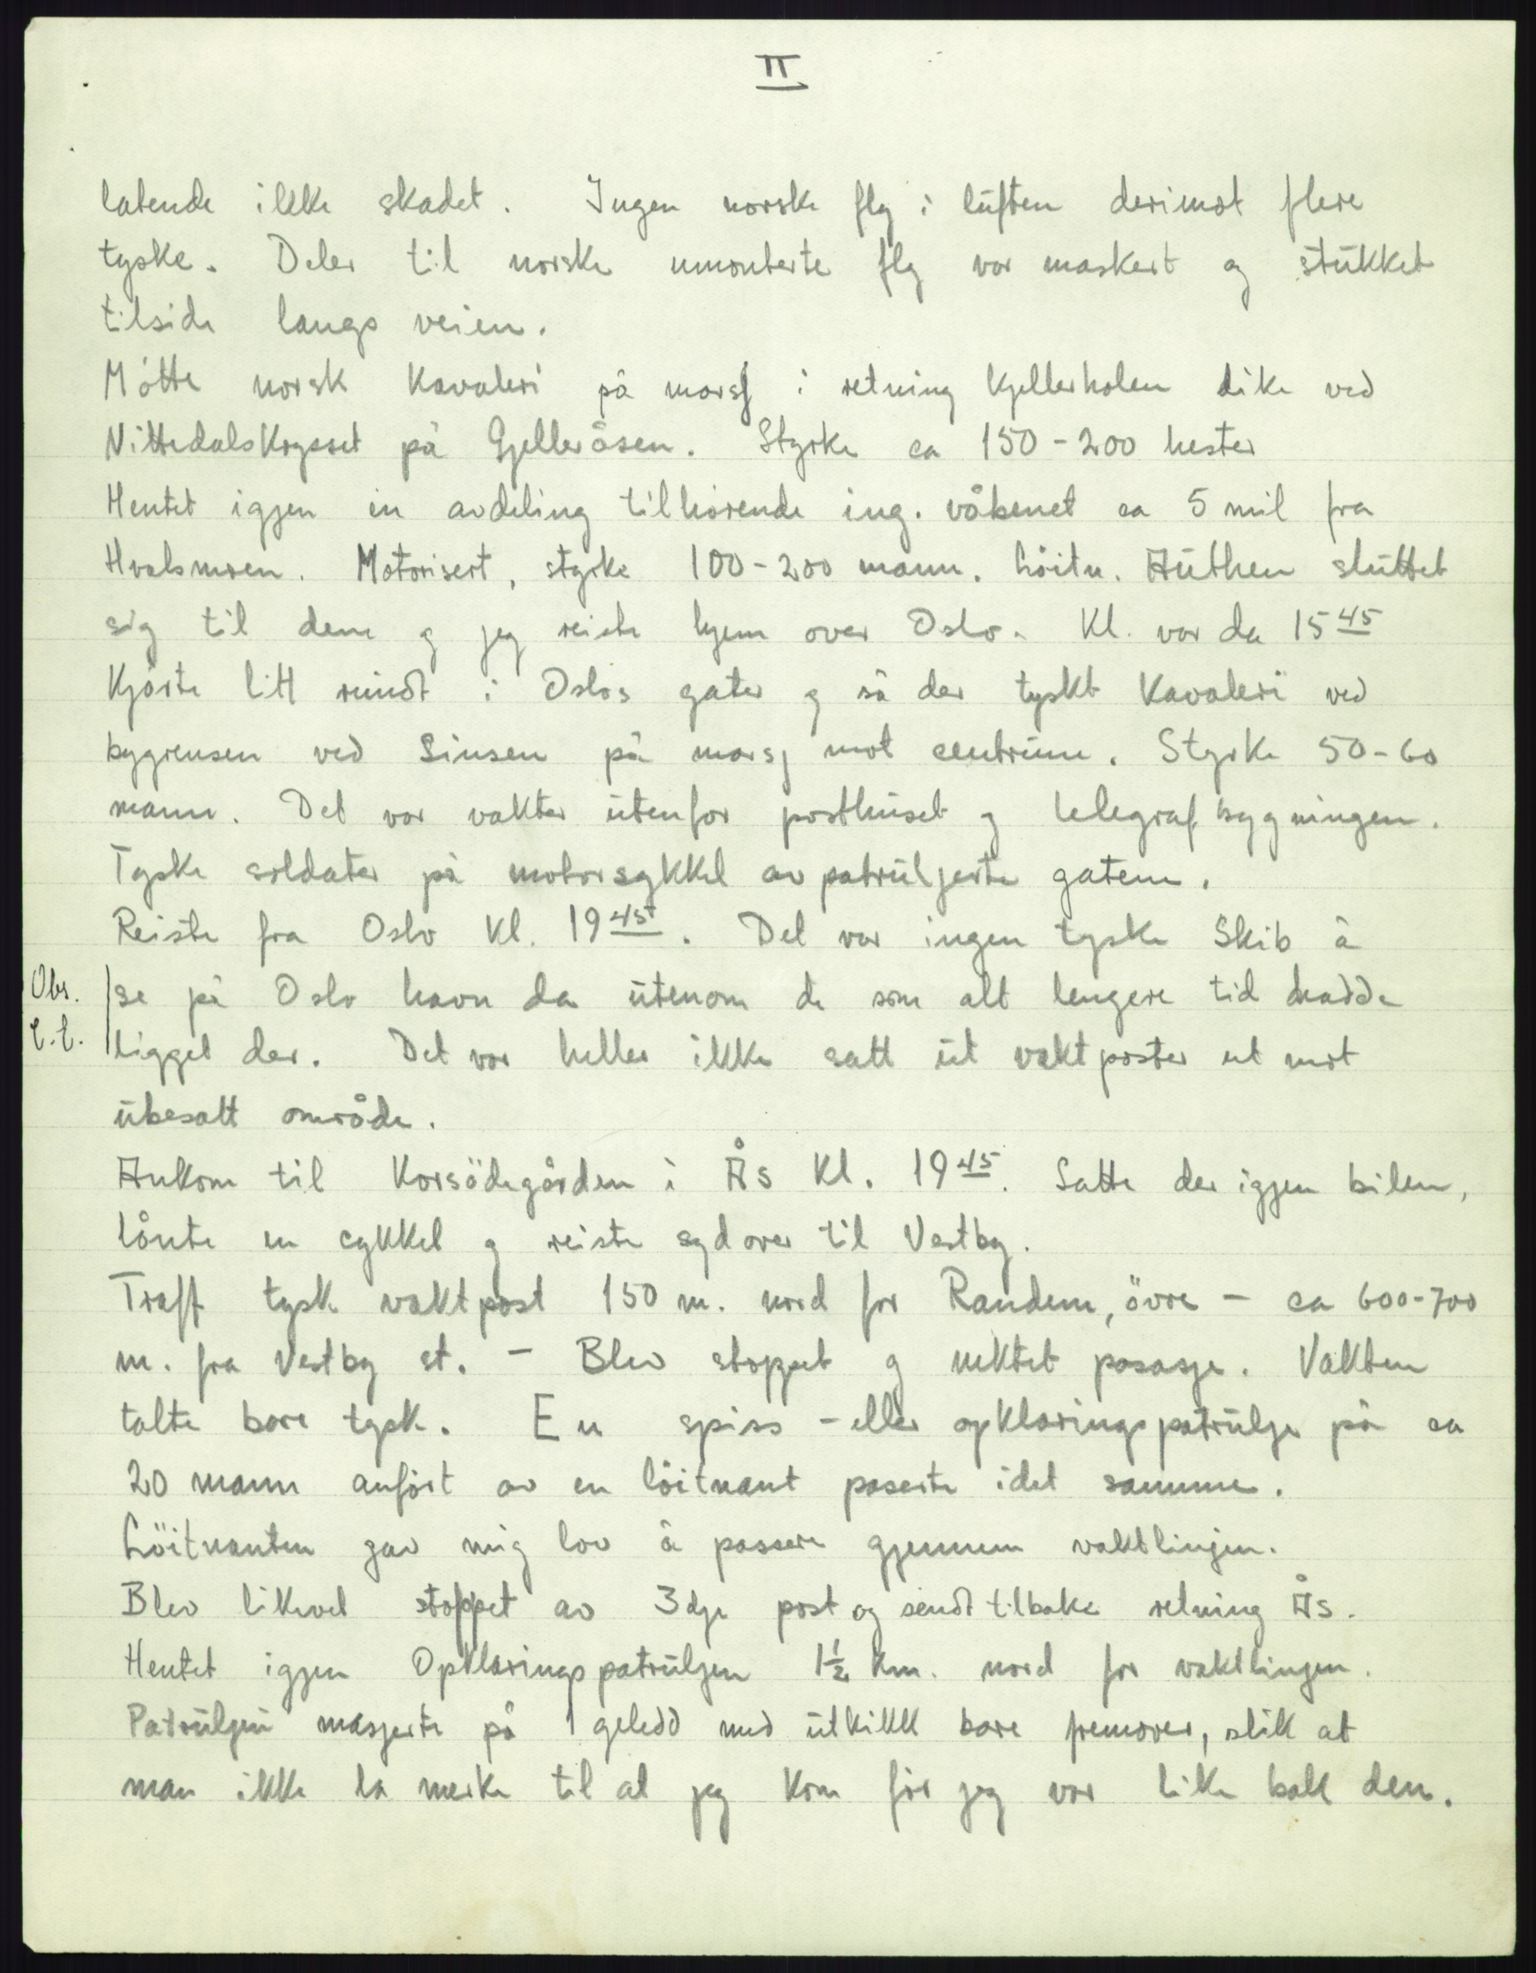 II
latende ikke skadet. Ingen norske fly i luften derimot flere
tyske. Deler til norske umonterte fly var maskert og stukket
tilside langs veien.
Møtte norsk Kavaleri på marsj i retning Kjellerholen like ved
Nittedalskrysset på Gjelleråsen. Styrke ca 150-200 hester
Hentet igjen en avdeling tilhørende ing. våbenet ca 5 mil fra
Hvalsmoen. Motorisert, styrke 100-200 mann. Löitn. Authen sluttet
sig til dem og jeg reiste hjem over Oslo. Kl. var da 15 45
Kjørte litt rundt i Oslos gater og så der tyskt Kavaleri ved
bygrensen ved Sinsen på marsj mot centrum. Styrke 50-60
mann. Det var vakter utenfor posthuset og telegrafbygningen.
Tyske soldater på motorsykkel avpatruljerte gatene.
Reiste fra Oslo Kl. 19 45. Det var ingen tyske Skib å
Obs. se på Oslo havn da utenom de som alt lengere tid hadde
ligget der. Det var heller ikke satt ut vaktposter ut mot
ubesatt område.
Ankom til Korsödegården i Ås Kl. 19 45. Satte der igjen bilen,
lånte en cykkel og reiste sydover til Vestby.
Traff tysk vaktpost 150 m. nord for Randem, övre - ca 600-700
m. fra Vestby st. - Blev stoppet og nektet pasasje. Vakten
talte bare tysk. En spiss - eller opklaringspatrulje på ca
20 mann anført av en löitnant paserte idet samme.
Löitnanten gav mig lov å passere gjennem vaktlinjen.
Blev likevel stoppet av 3dje post og sendt tilbake retning Ås.
Hentet igjen Opklaringspatruljen 1½ km. nord for vaktlinjen.
Patruljen masjerte på 1 geledd med utkikk bare fremover, slik at
man ikke la merke til at jeg kom før jeg var like bak den.